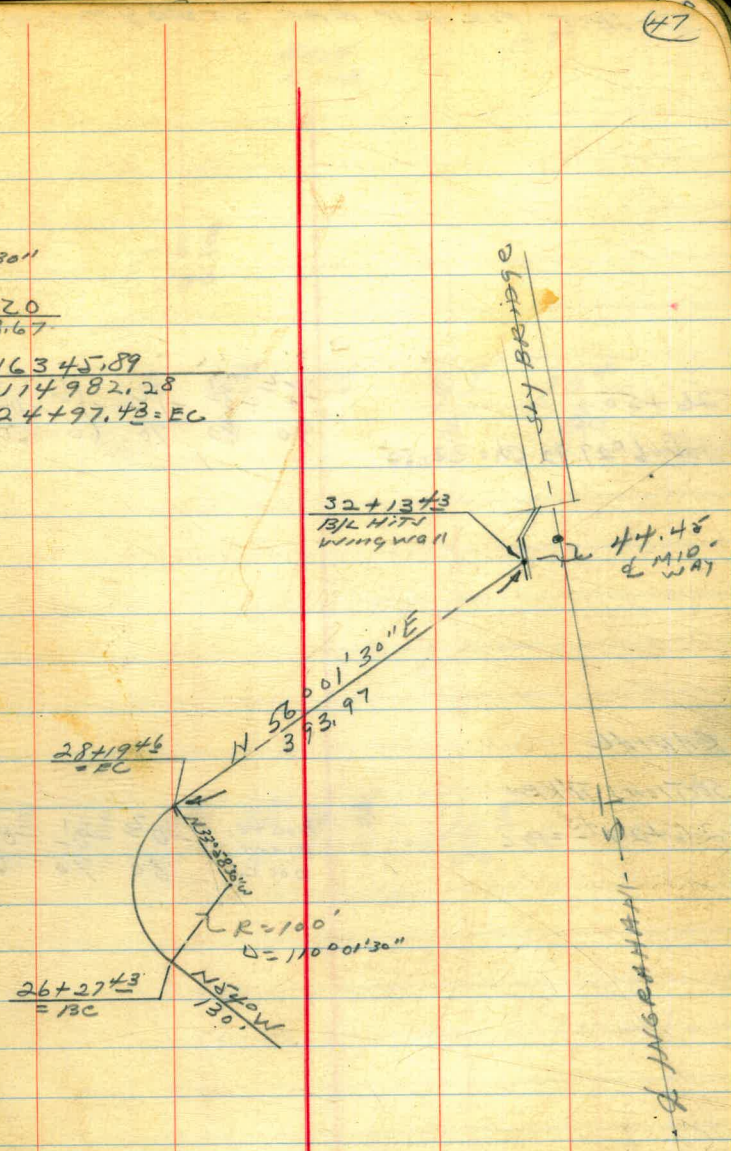 47
30"
20
.67
16345.89
114982.28
24+97.43=EC
Sly BRIDGE
32+13 43
B/L HITS
wingwall
44.45
℄ MID-
WAY
N 56°01'30"E
393.97
28+19 46
=EC
N33°58'30"W
R=100'
Δ=110°01'30"
26+27 43
=BC
N54°W
130'
℄ INGRAHAM - ST